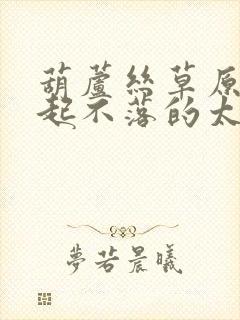 葫蘆絲草原
起不落的太
夢若晨曦